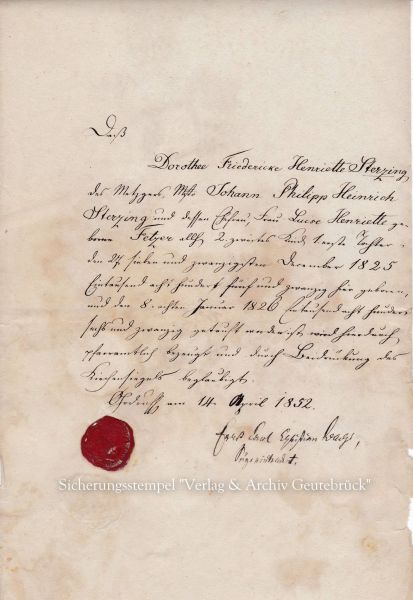 Daß
Dorothee Friedericke Henriette Sterzing,
des Metzgers Mstr. Johann Philipp Heinrich
Sterzing und dessen Ehefrau, Frau Henriette ge-
borne Fetzer 2. Kind, Tochter
den 27. sieben und zwanzigsten December 1825
Eintausend acht hundert fünf und zwanzig hier geboren,
und den 8. achten Januar 1826 Eintausend acht hundert
sechs und zwanzig getauft worden ist, wird hierdurch
pfarramtlich bezeugt und durch Beidrückung des
Kirchensiegels beglaubigt.
Ohrdruff am 14. April 1852.
Ernst Christian
Sicherungsstempel "Verlag & Archiv Geutebrück"